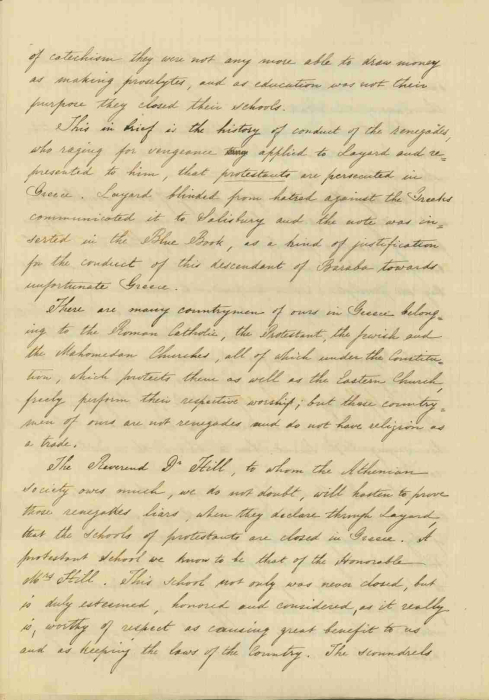 of catechism they were not any more able to draw money
as making proselytes, and as education was not their
purpose they closed their schools.
This in brief is the history of conduct of the renegades,
who raging for vengeance applied to Layard and re=
presented to him, that protestants are persecuted in
Greece. Layard blinded from hatred against the Greeks
communicated it to Salisbury and the note was in=
serted in the Blue Book, as a kind of justification
for the conduct of this descendant of Baraba towards
unfortunate Greece.
There are many countrymen of ours in Greece belong=
ing to the Roman Catholic, the Protestant, the Jewish and
the Mahomedan Churches, all of which under the Constitu=
tion, which protects them as well as the Eastern Church,
freely perform their respective worship; but those country=
men of ours are not renegades and do not have religion as
a trade.
The Reverend Dr Hill, to whom the Athenian
society owes much, we do not doubt, will hasten to prove
those renegades liars, when they declare through Layard,
that the schools of protestants are closed in Greece. A
protestant school we know to be that of the Honorable
Mrs Hill. This school not only was never closed, but
is duly esteemed, honored and considered, as it really
is, worthy of respect as causing great benefit to us
and as keeping the laws of the Country. The scoundrels